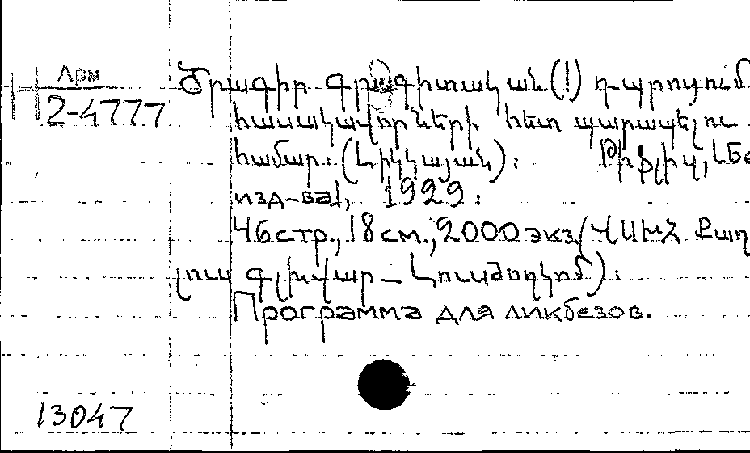 Арм
2-4777
Ծրագիր գրագիտական (!) դպրոցում
հասակավորների հետ պարապելու
համար. (Լիկկայան): Թիֆլիս,
изд-ва), 1929:
46стр., 18см., 2000экз. (ՎՍԽՀ Քաղ
լուս գլխվար_ Լուսժողկոմ):
Программа для ликбезов.
13047